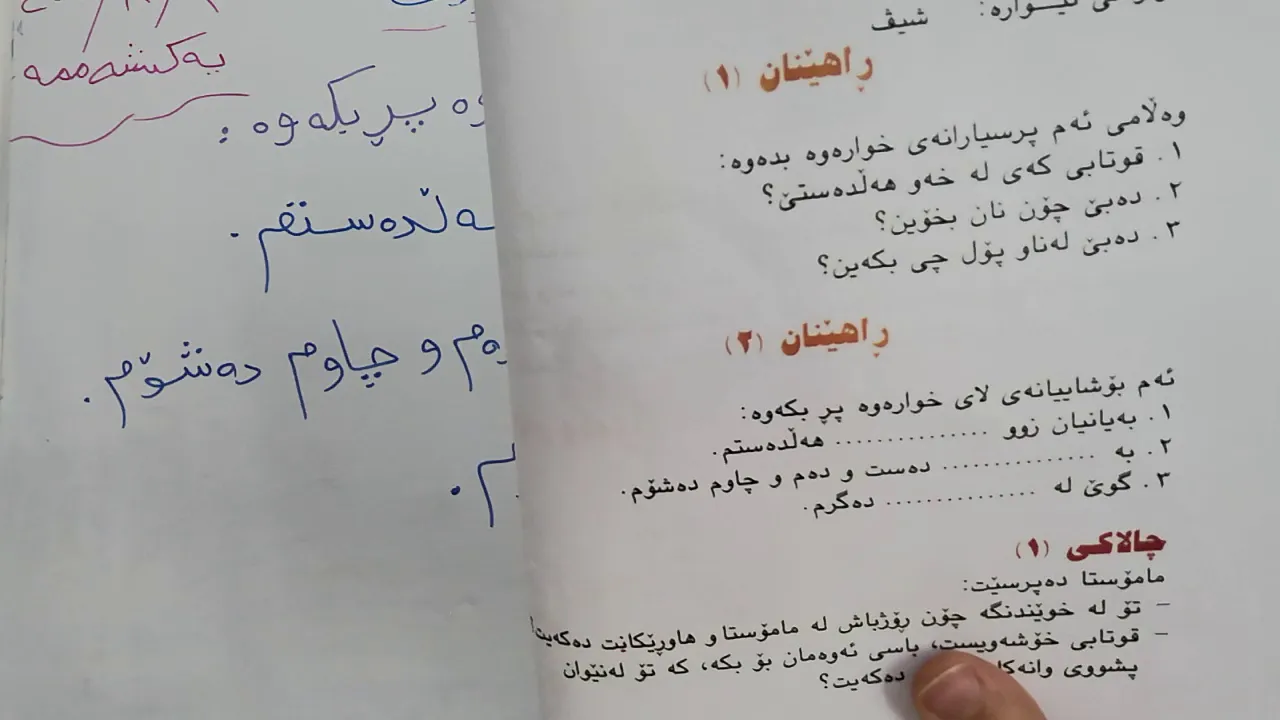 شیڤ
ڕاهێنان (١)
وەڵامی ئەم پرسیارانەی خوارەوە بدەوە:
١. قوتابی کەی لە خەو هەڵدەستێ؟
٢. دەبێ چۆن نان بخۆین؟
٣. دەبێ لەناو پۆل چی بکەین؟
ڕاهێنان (٢)
ئەم بۆشاییانەی لای خوارەوە پڕ بکەوە:
١. بەیانیان زوو ............... هەڵدەستم.
٢. بە ............... دەست و دەم و چاوم دەشۆم.
٣. گوێ لە ............... دەگرم.
چالاکی (١)
مامۆستا دەپرسێت:
– تۆ لە خوێندنگە چۆن ڕۆژباش لە مامۆستا و هاوڕێکانت دەکەیت
– قوتابی خۆشەویست، باسی ئەوەمان بۆ بکە، کە تۆ لەنێوان
پشووی دەکەیت؟
یەکشەممە
پڕبکەوە :
دەستم .
و چاوم دەشۆم .